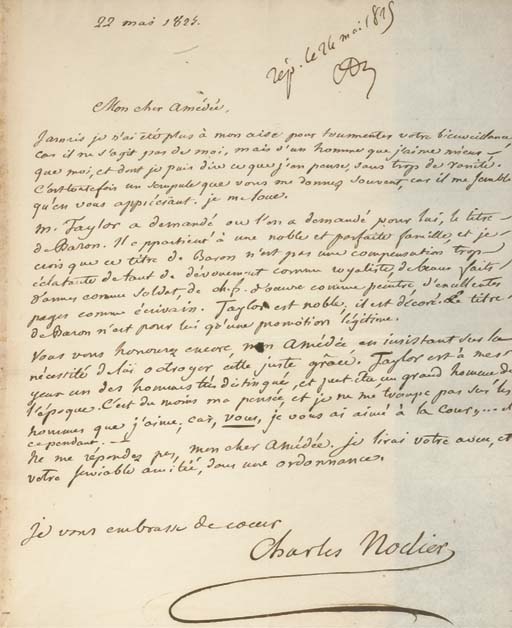 22 mai 1825.
rép. le 24 mai 1825
Mon cher Amédée,
Jamais je n'ai été plus à mon aise pour tourmenter votre bienveillance
car il ne s'agit pas de moi, mais d'un homme que j'aime mieux
que moi, et dont je puis dire ce que j'en pense, sans trop de vanité.
C'est toutefois un scrupule que vous me donnez souvent, car il me semble
qu'en vous appréciant je me loue.
M. Taylor a demandé ou l'on a demandé pour lui, le titre
de Baron. Il appartient à une noble et parfaite famille et je
crois que ce titre de Baron n'est pas une compensation trop
éclatante de tant de dévouement comme royaliste de beaux faits
d'armes comme soldat, de ch. d'œuvre comme peintre, d'excellentes
pages comme écrivain. Taylor est noble, il est décoré. Le titre
de Baron n'est pour lui qu'une promotion légitime.
Vous vous honorerez encore, mon Amédée en insistant sur la
nécessité de lui octroyer cette juste grâce. Taylor est à mes
yeux un des hommes très distingués, et peut être un grand homme de
l'époque. C'est du moins ma pensée et je ne me trompe pas sur les
hommes que j'aime, car, vous, je vous ai aimé à la cour, ... et
cependant. —
Ne me répondez pas, mon cher Amédée. Je lirai votre aveu, et
votre amitié, dans une ordonnance.
Je vous embrasse de cœur
Charles Nodier